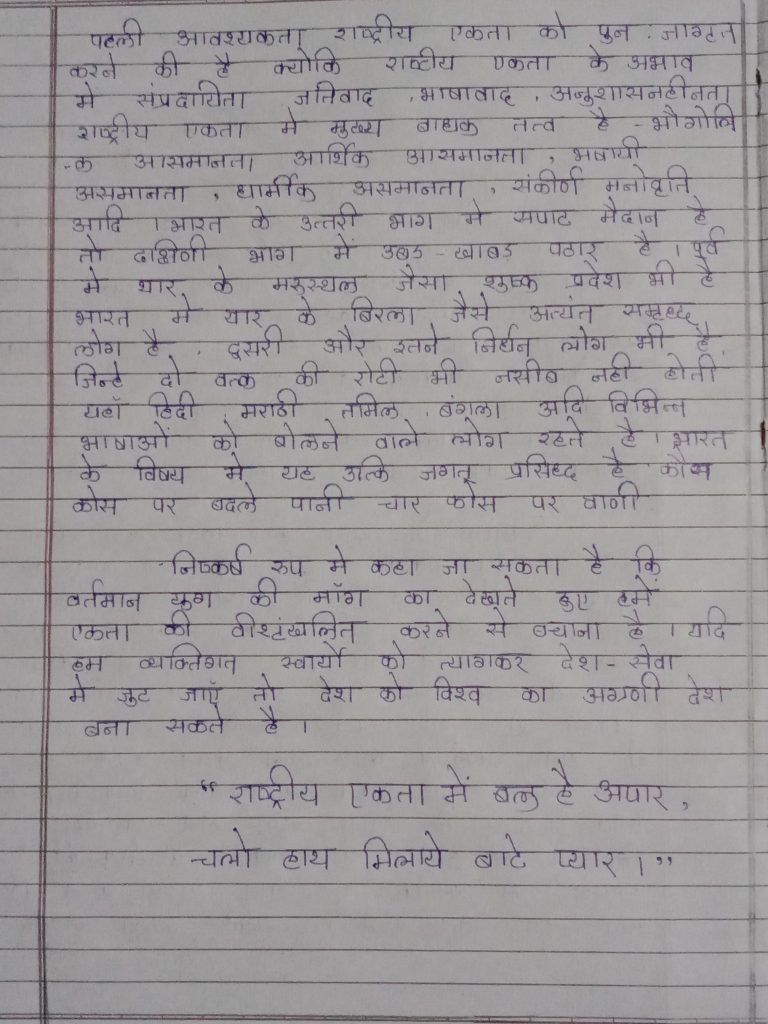 पहली आवश्यकता राष्ट्रीय एकता को पुन : जाग्रत
करने की है क्योकि राष्टीय एकता के अभाव
मे संप्रदायिता जतिवाद , भाषावाद , अनुशासनहीनता
राष्ट्रीय एकता मे मुख्य बाधक तत्व है - भौगोलि
-क आसमानता आर्थिक आसमानता , भषायी
असमानता , धार्मीक असमानता , संकीर्ण मनोवृति
आदि । भारत के उत्तरी भाग मे सपाट मैदान है
तो दक्षिणी भाग में उबड़ - खाबड़ पठार है । पुर्व
मे थार के मरुस्थल जैसा शुष्क प्रदेश भी है
भारत मे यार के बिरला जैसे अत्यंत समृध्द
लोग है , दुसरी और इतने निर्धन लोग भी है
जिन्हे दो वत्क की रोटी भी नसीब नही होती
यहाँ हिदी , मराठी तमिल , बंगला अदि विभिन्न
भाषाओं को बोलने वाले लोग रहते है । भारत
के विषय मे यह उत्कि जगत् प्रसिध्द है कौस
कोस पर बदले पानी चार कोस पर वाणी
निष्कर्ष रुप मे कहा जा सकता है कि
वर्तमान युग की माँग का देखते हुए हमें
एकता की वीश्टंखलित करने से बचाना है । यदि
हम व्यक्तिगत स्वार्यो को त्यागकर देश - सेवा
मे जुट जाएँ तो देश को विश्व का अग्रणी देश
बना सकते है ।
“ राष्ट्रीय एकता में बल है अपार ,
चलो हाथ मिलाये बाटे प्यार । ”